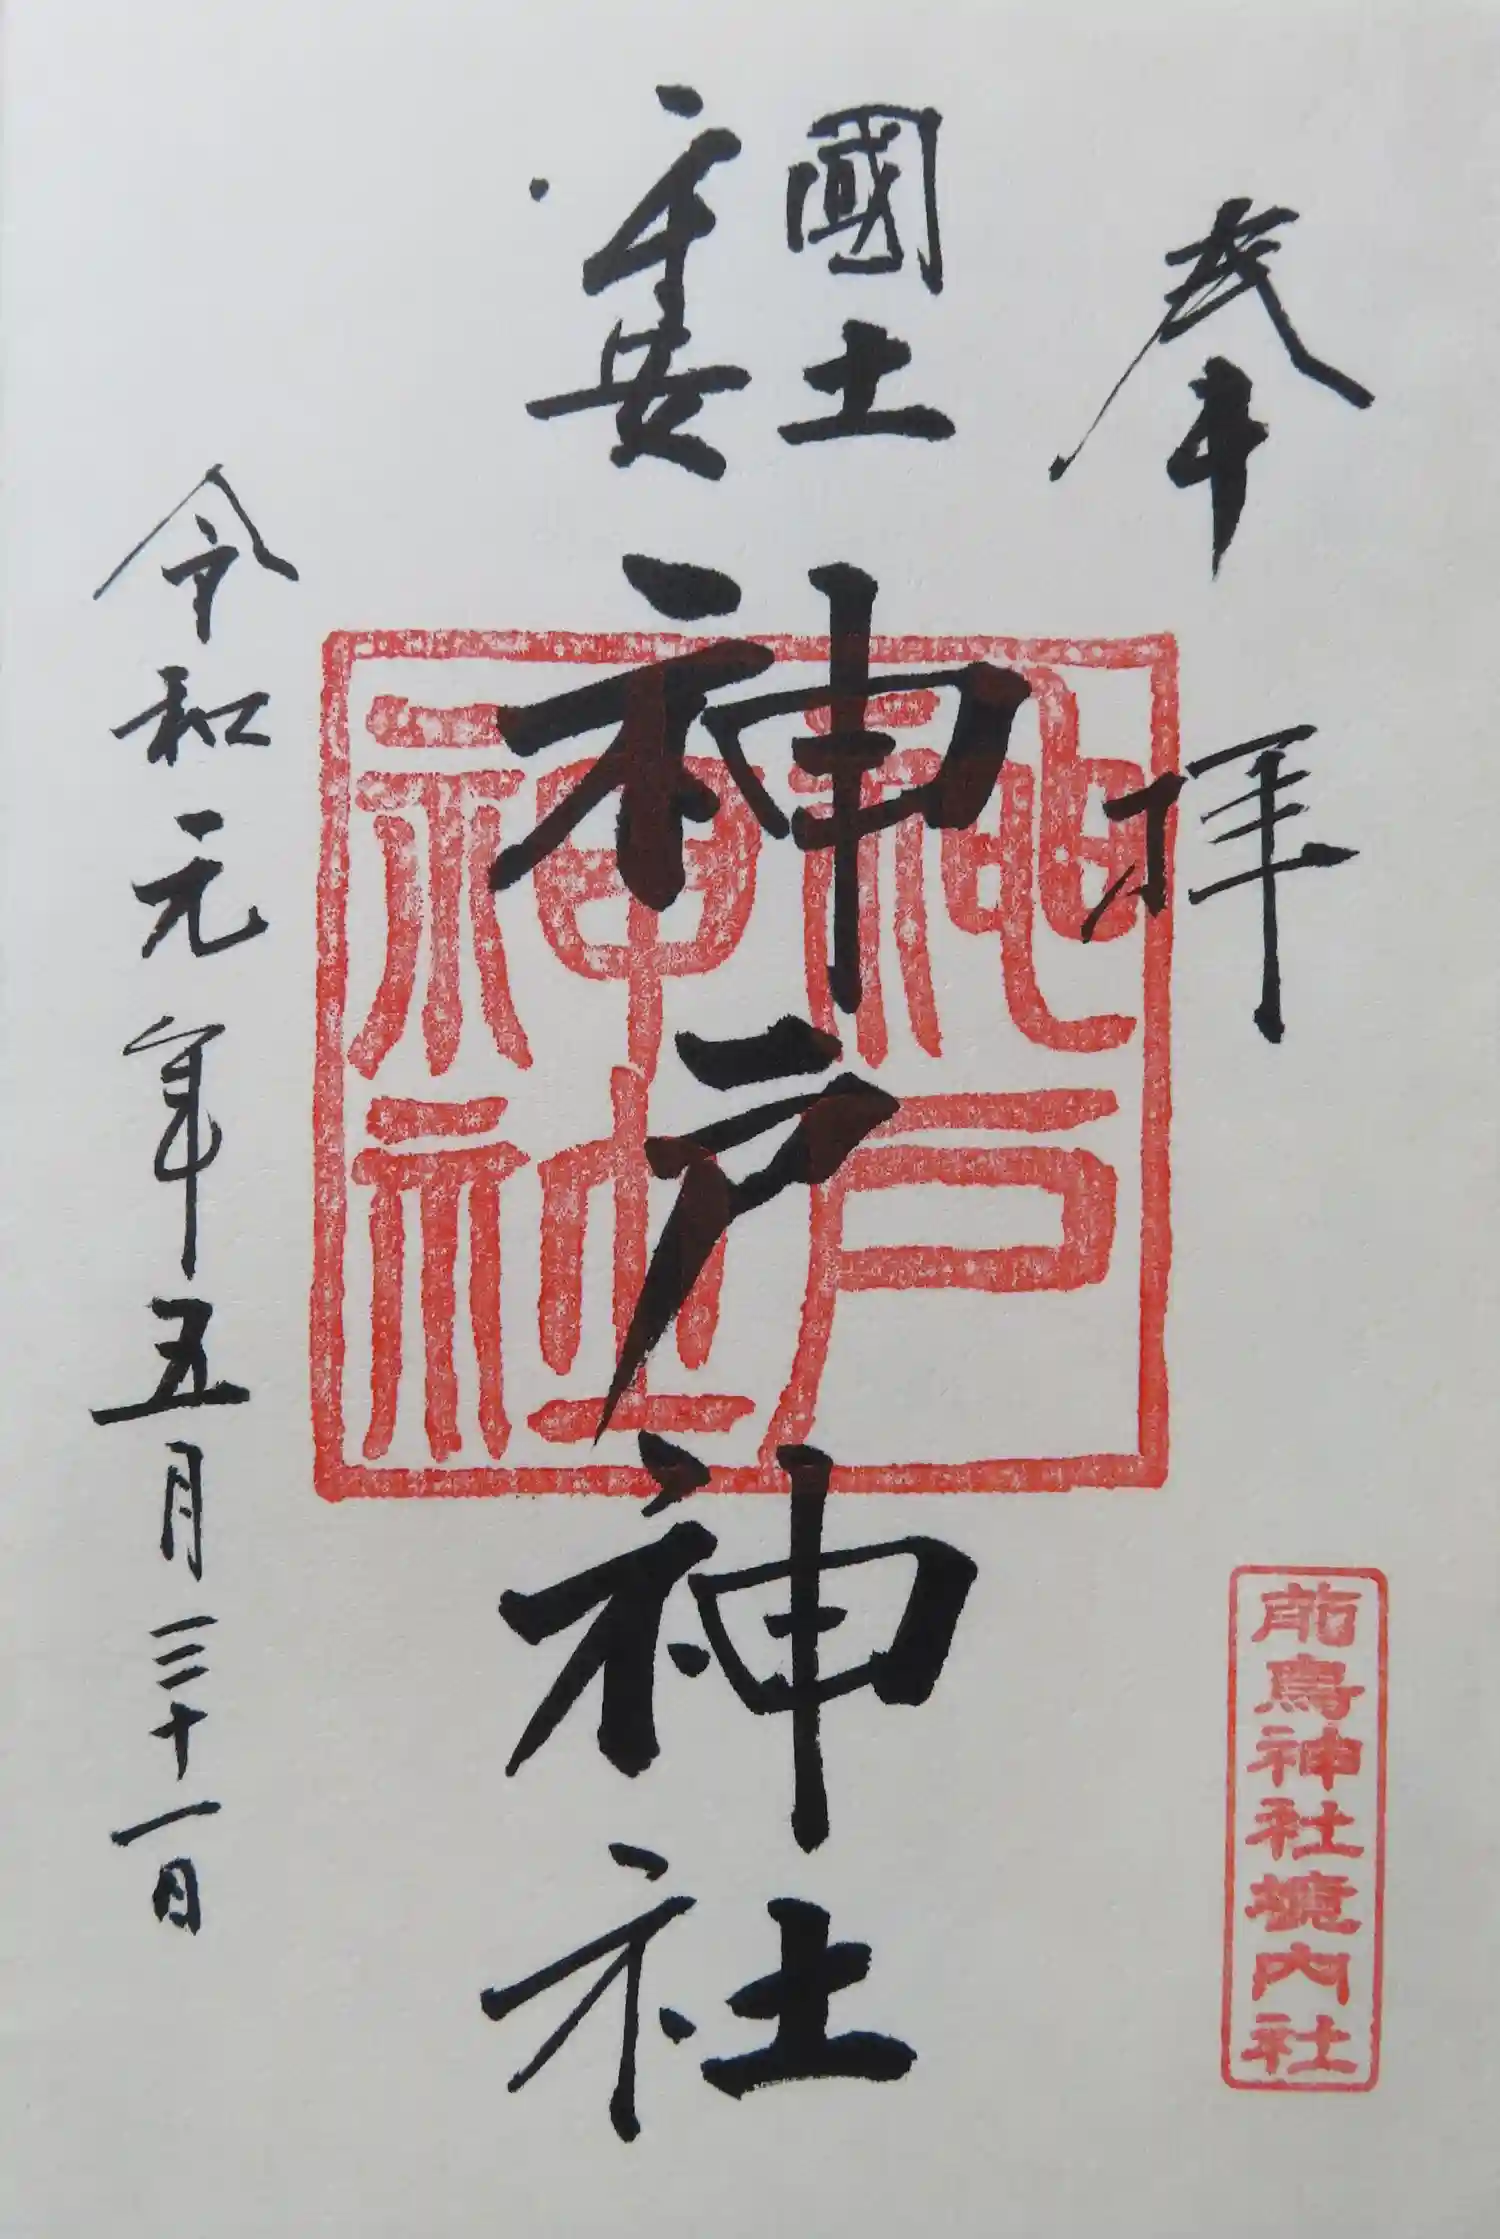 奉拝
國土
神戸神社
神戸
神社
前鳥神社境内社
令和元年五月三十一日